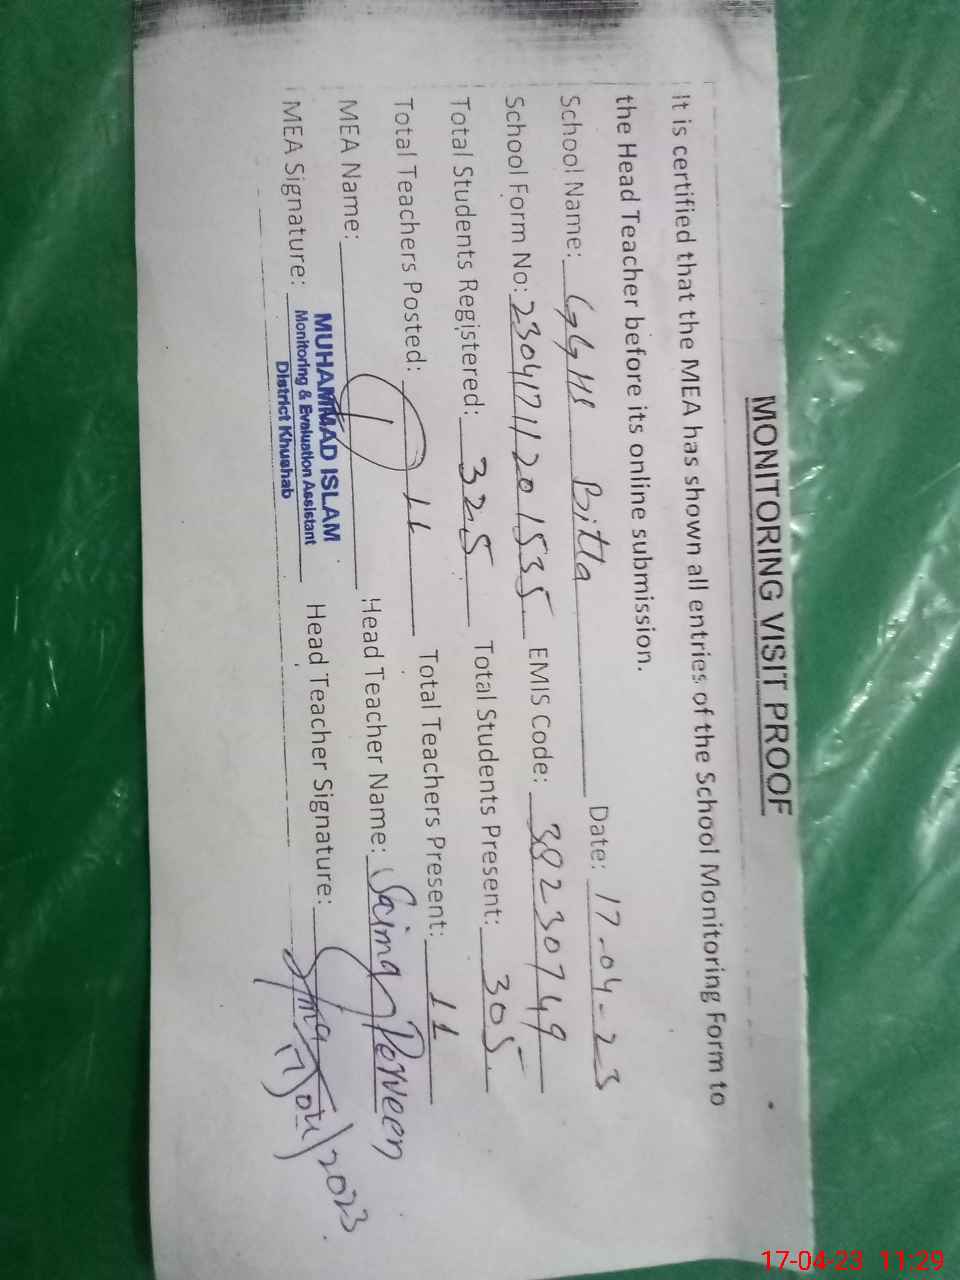 MONITORING VISIT PROOF
It is certified that the MEA has shown all entries of the School Monitoring Form to
the Head Teacher before its online submission.
School Name: GGHS Bitla Date: 17-04-23
School Form No: 23041711201535 EMIS Code: 38230749
Total Students Registered: 325 Total Students Present: 305
Total Teachers Posted: 11 Total Teachers Present: 11
MEA Name: Head Teacher Name: Saima Perveen
MEA Signature: Head Teacher Signature:
MUHAMMAD ISLAM
Monitoring & Evaluation Assistant
District Khushab
17/04/2023
17-04-23 11:29